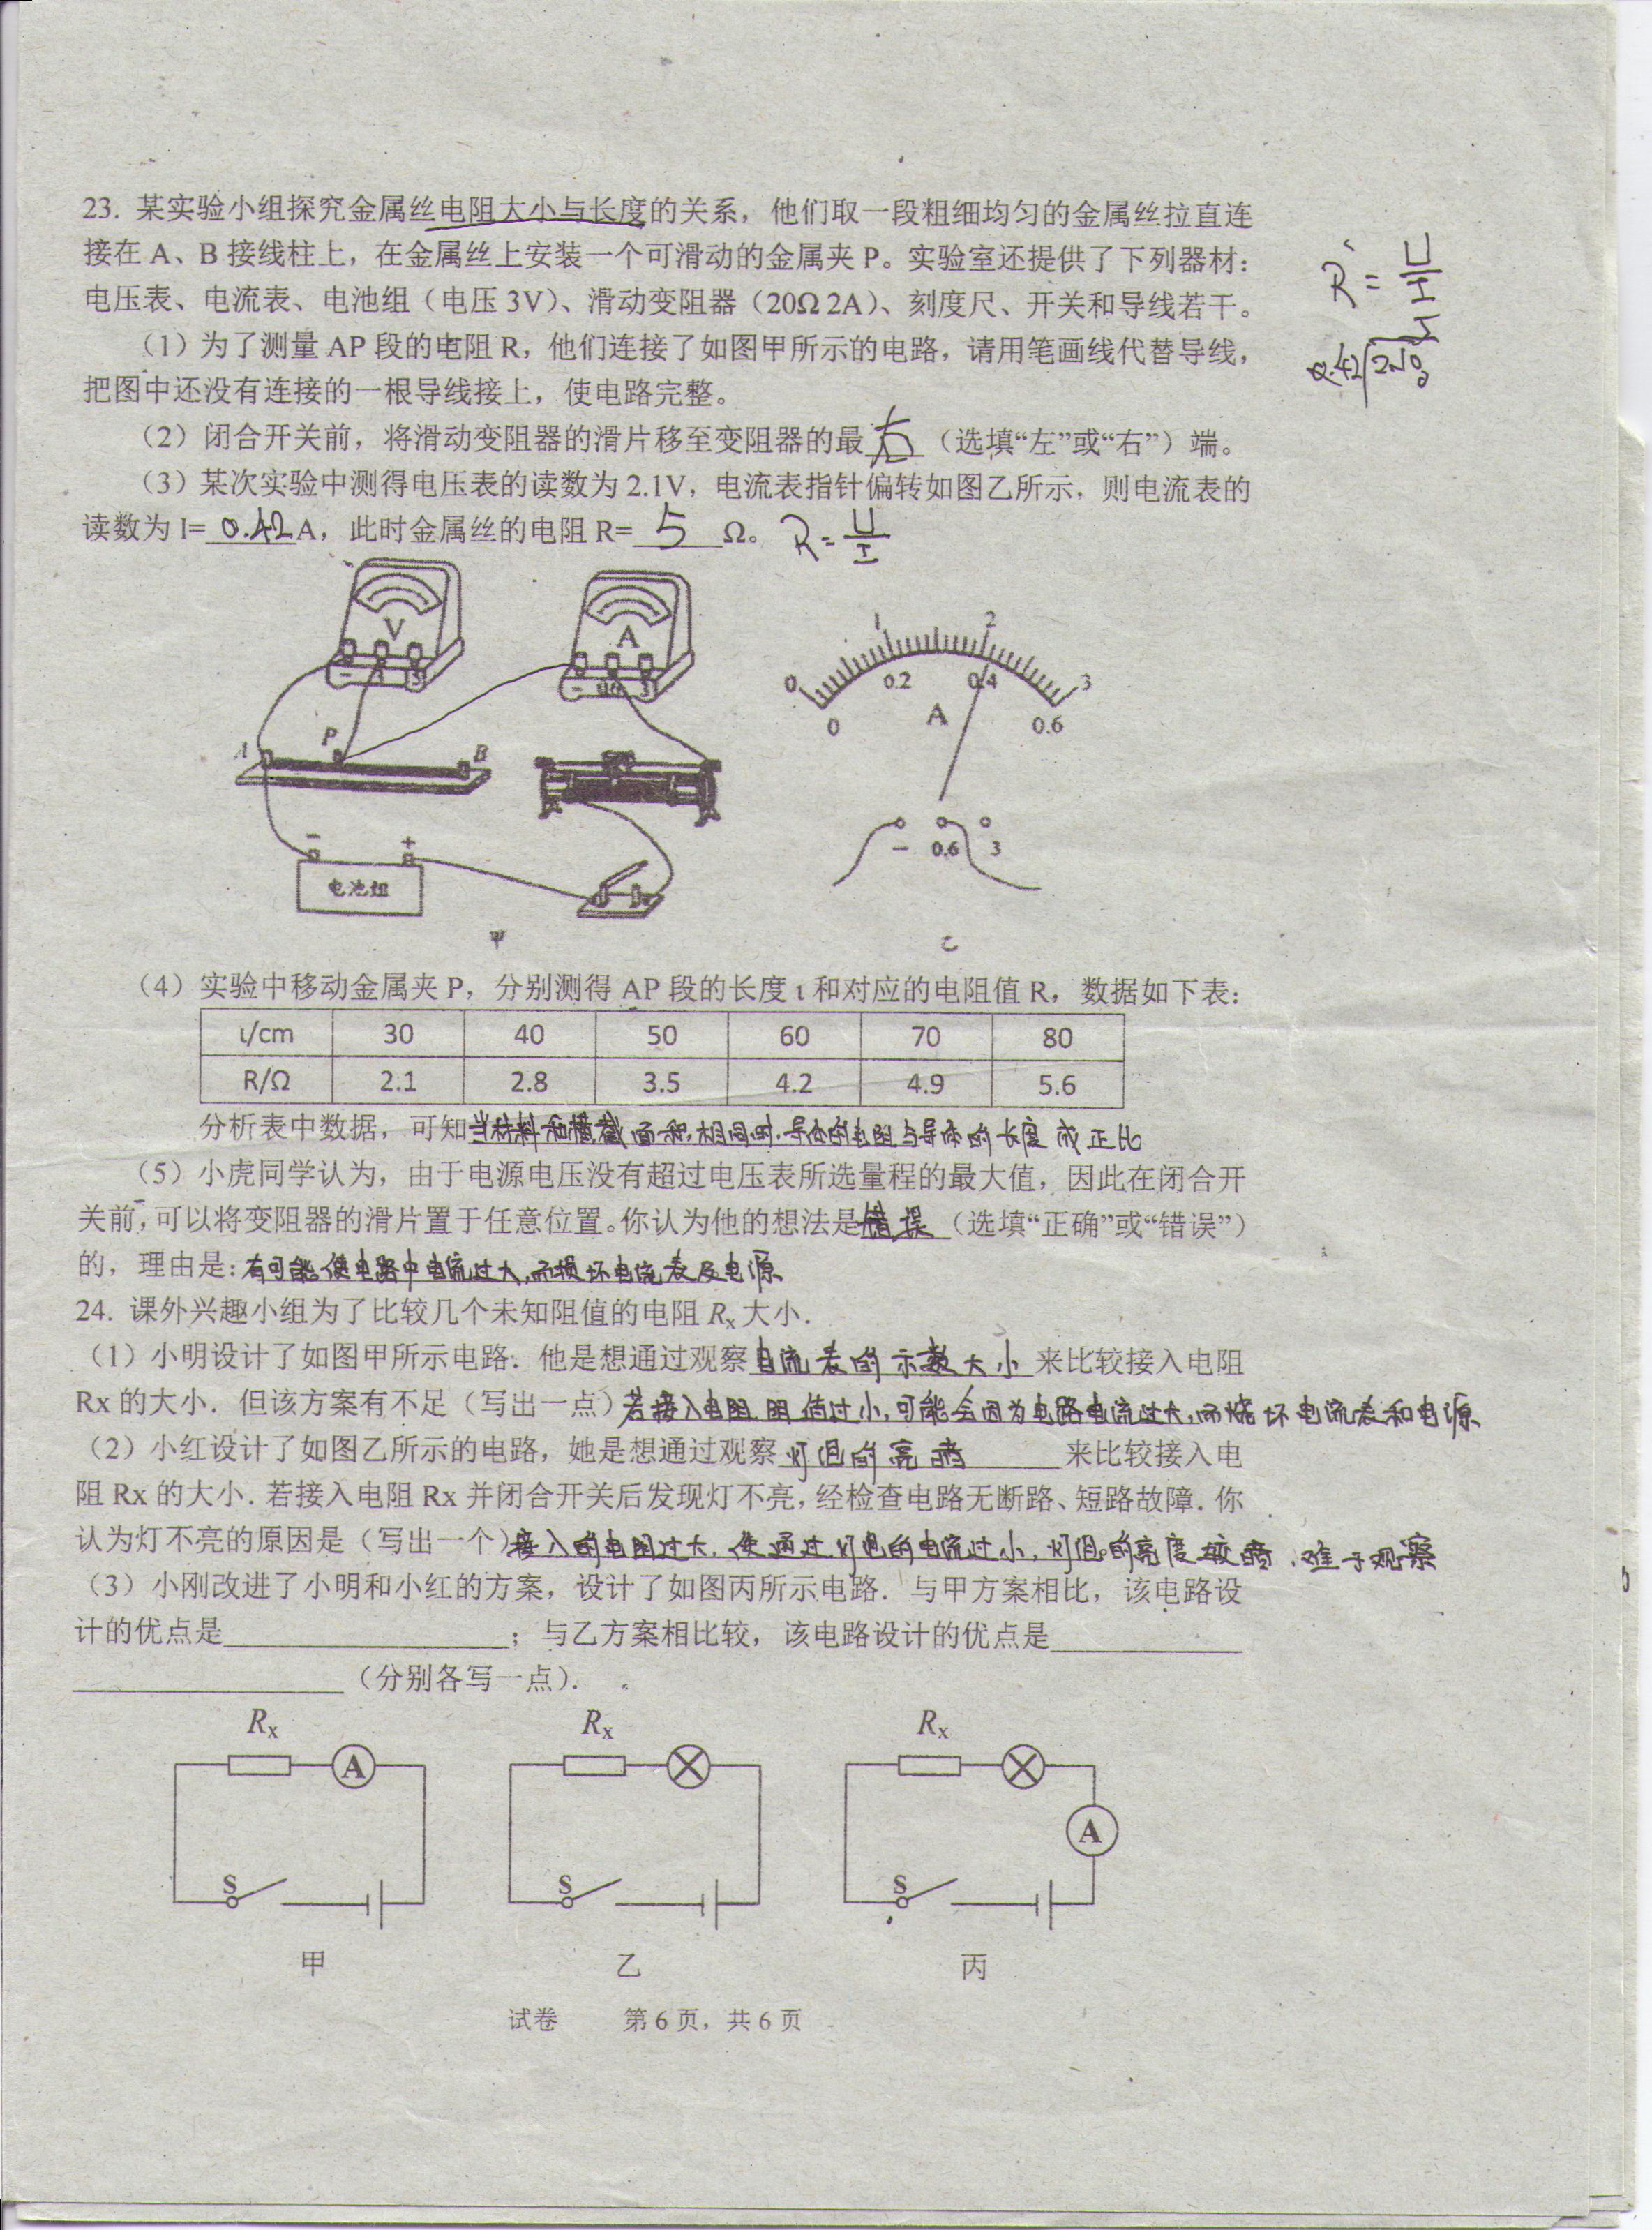 23. 某实验小组探究金属丝电阻大小与长度的关系，他们取一段粗细均匀的金属丝拉直连
接在 A、B 接线柱上，在金属丝上安装一个可滑动的金属夹 P。实验室还提供了下列器材：
电压表、电流表、电池组（电压 3V）、滑动变阻器（20Ω 2A）、刻度尺、开关和导线若干。
R=U/I
（1）为了测量 AP 段的电阻 R，他们连接了如图甲所示的电路，请用笔画线代替导线，
把图中还没有连接的一根导线接上，使电路完整。
（2）闭合开关前，将滑动变阻器的滑片移至变阻器的最右（选填“左”或“右”）端。
（3）某次实验中测得电压表的读数为 2.1V，电流表指针偏转如图乙所示，则电流表的
读数为 I=0.42A，此时金属丝的电阻 R=5Ω。 R=U/I
V
A
A P B
- 0.6 3
- +
电池组
甲
0 1 2 3
0 0.2 0.4 0.6
A
- 0.6 3
乙
（4）实验中移动金属夹 P，分别测得 AP 段的长度 ι 和对应的电阻值 R，数据如下表：
ι/cm 30 40 50 60 70 80
R/Ω 2.1 2.8 3.5 4.2 4.9 5.6
分析表中数据，可知当材料和横截面积相同时，导体的电阻与导体的长度成正比
（5）小虎同学认为，由于电源电压没有超过电压表所选量程的最大值，因此在闭合开
关前，可以将变阻器的滑片置于任意位置。你认为他的想法是错误（选填“正确”或“错误”）
的，理由是：有可能使电路中电流过大，而损坏电流表及电源
24. 课外兴趣小组为了比较几个未知阻值的电阻 Rx 大小.
（1）小明设计了如图甲所示电路. 他是想通过观察电流表的示数大小来比较接入电阻
Rx 的大小. 但该方案有不足（写出一点）若接入电阻阻值过小，可能会因为电路电流过大，而烧坏电流表和电源
（2）小红设计了如图乙所示的电路，她是想通过观察灯泡的亮暗来比较接入电
阻 Rx 的大小. 若接入电阻 Rx 并闭合开关后发现灯不亮，经检查电路无断路、短路故障. 你
认为灯不亮的原因是（写出一个）接入的电阻过大，使通过灯泡的电流过小，灯泡的亮度较暗，难于观察
（3）小刚改进了小明和小红的方案，设计了如图丙所示电路. 与甲方案相比，该电路设
计的优点是；与乙方案相比较，该电路设计的优点是
（分别各写一点）.
Rx Rx Rx
A
A
S S S
甲 乙 丙
试卷 第 6 页，共 6 页